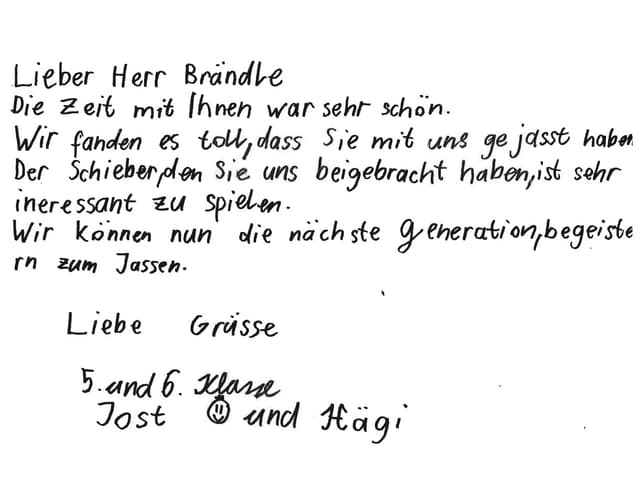 Lieber Herr Brändle
Die Zeit mit Ihnen war sehr schön.
Wir fanden es toll, dass Sie mit uns gejasst haben
Der Schieber, den Sie uns beigebracht haben, ist sehr
ineressant zu spielen.
Wir können nun die nächste generation, begeiste
rn zum Jassen.
Liebe Grüsse
5. und 6. Klasse
Jost und Hägi